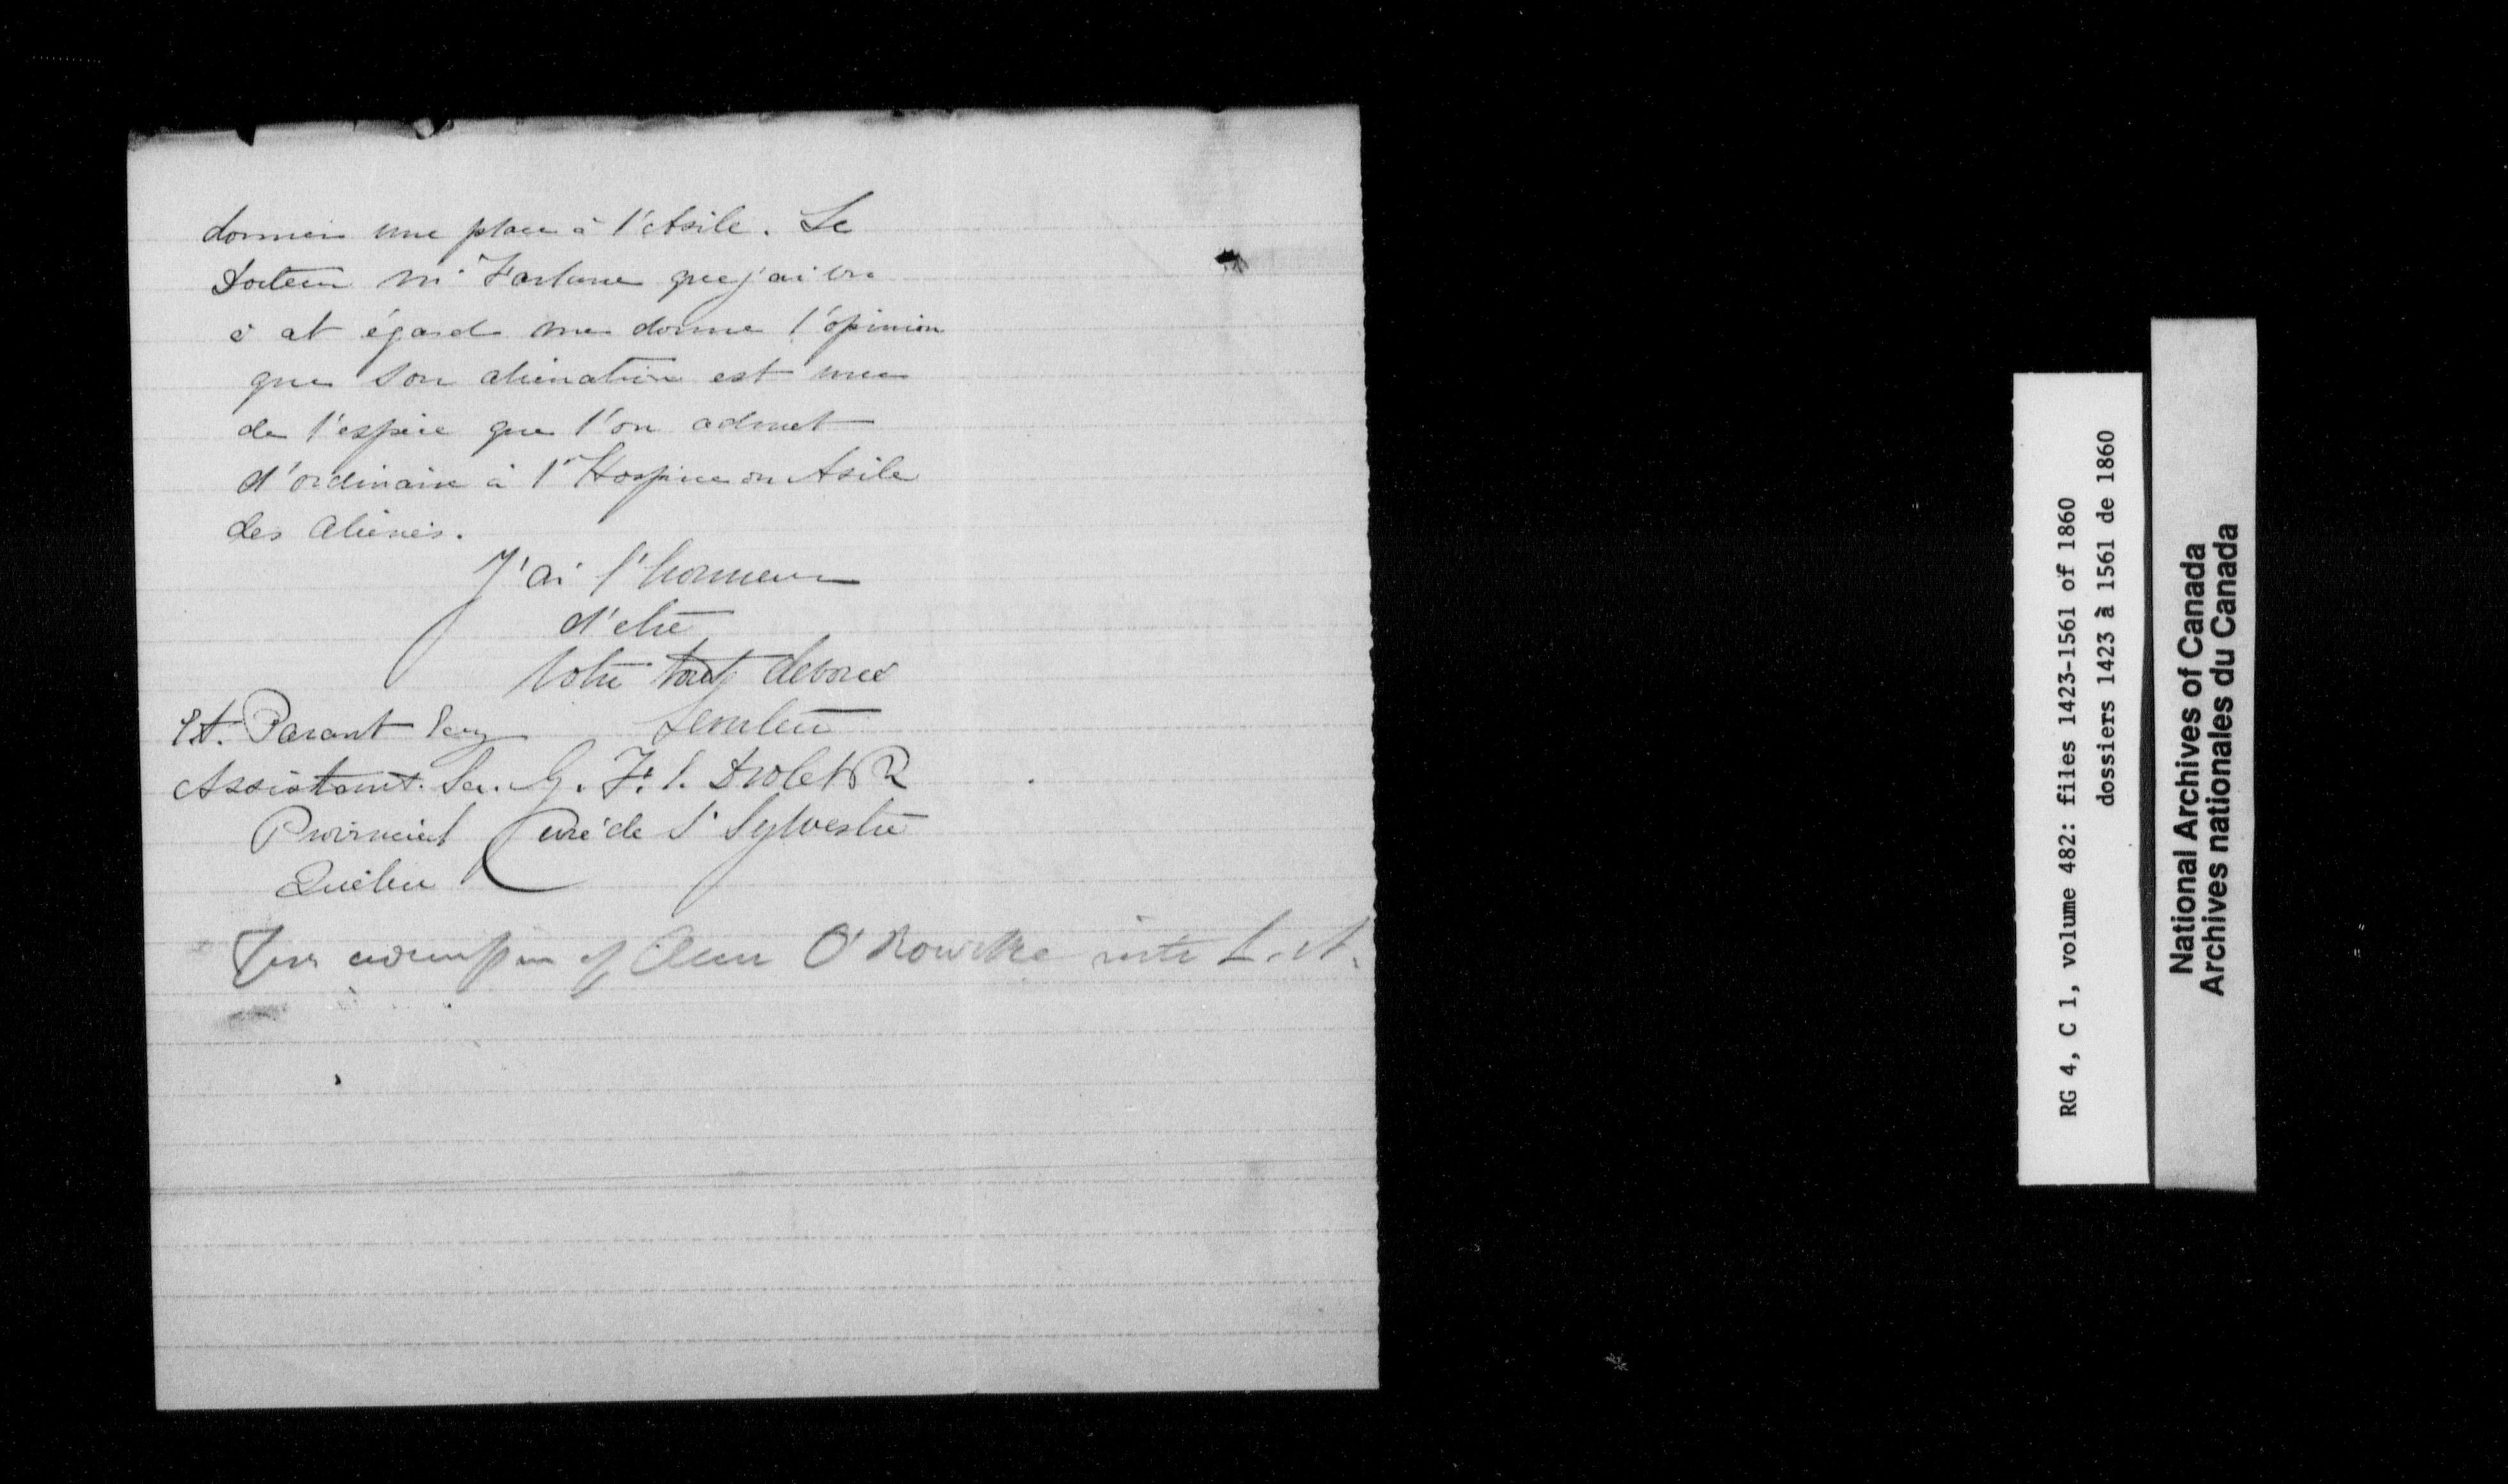 donner une place à l'Asile. Le
Docteur Mc Fortune que j'ai vu
à cet égard me donne l'opinion
que son aliénation est une
de l'espèce que l'on admet
d'ordinaire à l'Hospice ou Asile
des aliénés.
J'ai l'honneur
d'etre
Votre tout devoué
Serviteur
Et. Parant Ecuy
Assistant. Sec.
Provincial
Québec
J. F. S. Drolet
Curé de St Sylvestre
For admission of Ann O'Rourke into L. A.
RG 4, C 1, volume 482: files 1423-1561 of 1860
dossiers 1423 à 1561 de 1860
National Archives of Canada
Archives nationales du Canada